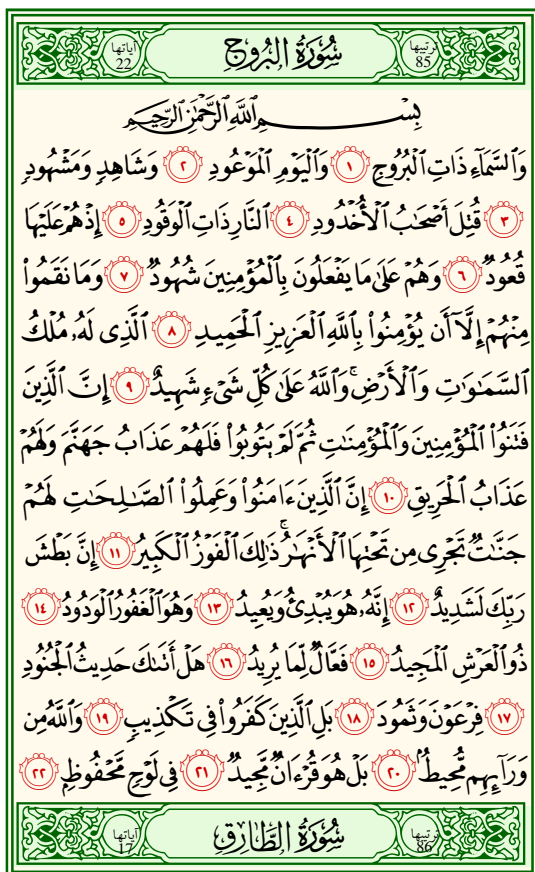 آياتها 22 سُورَةُ الْبُرُوجِ ترتيبها 85
بِسْمِ اللَّهِ الرَّحْمَٰنِ الرَّحِيمِ
وَالسَّمَآءِ ذَاتِ الْبُرُوجِ ١ وَالْيَوْمِ الْمَوْعُودِ ٢ وَشَاهِدٍ وَمَشْهُودٍ
٣ قُتِلَ أَصْحَٰبُ الْأُخْدُودِ ٤ النَّارِ ذَاتِ الْوَقُودِ ٥ إِذْ هُمْ عَلَيْهَا
قُعُودٌ ٦ وَهُمْ عَلَىٰ مَا يَفْعَلُونَ بِالْمُؤْمِنِينَ شُهُودٌ ٧ وَمَا نَقَمُوا۟
مِنْهُمْ إِلَّآ أَن يُؤْمِنُوا۟ بِاللَّهِ الْعَزِيزِ الْحَمِيدِ ٨ الَّذِى لَهُۥ مُلْكُ
السَّمَٰوَٰتِ وَالْأَرْضِ ۚ وَاللَّهُ عَلَىٰ كُلِّ شَىْءٍ شَهِيدٌ ٩ إِنَّ الَّذِينَ
فَتَنُوا۟ الْمُؤْمِنِينَ وَالْمُؤْمِنَٰتِ ثُمَّ لَمْ يَتُوبُوا۟ فَلَهُمْ عَذَابُ جَهَنَّمَ وَلَهُمْ
عَذَابُ الْحَرِيقِ ١٠ إِنَّ الَّذِينَ ءَامَنُوا۟ وَعَمِلُوا۟ الصَّٰلِحَٰتِ لَهُمْ
جَنَّٰتٌ تَجْرِى مِن تَحْتِهَا الْأَنْهَٰرُ ۚ ذَٰلِكَ الْفَوْزُ الْكَبِيرُ ١١ إِنَّ بَطْشَ
رَبِّكَ لَشَدِيدٌ ١٢ إِنَّهُۥ هُوَ يُبْدِئُ وَيُعِيدُ ١٣ وَهُوَ الْغَفُورُ الْوَدُودُ ١٤
ذُو الْعَرْشِ الْمَجِيدُ ١٥ فَعَّالٌ لِّمَا يُرِيدُ ١٦ هَلْ أَتَىٰكَ حَدِيثُ الْجُنُودِ
١٧ فِرْعَوْنَ وَثَمُودَ ١٨ بَلِ الَّذِينَ كَفَرُوا۟ فِى تَكْذِيبٍ ١٩ وَاللَّهُ مِن
وَرَآئِهِم مُّحِيطٌۢ ٢٠ بَلْ هُوَ قُرْءَانٌ مَّجِيدٌ ٢١ فِى لَوْحٍ مَّحْفُوظٍۭ ٢٢
آياتها 17 سُورَةُ الطَّارِقِ ترتيبها 86